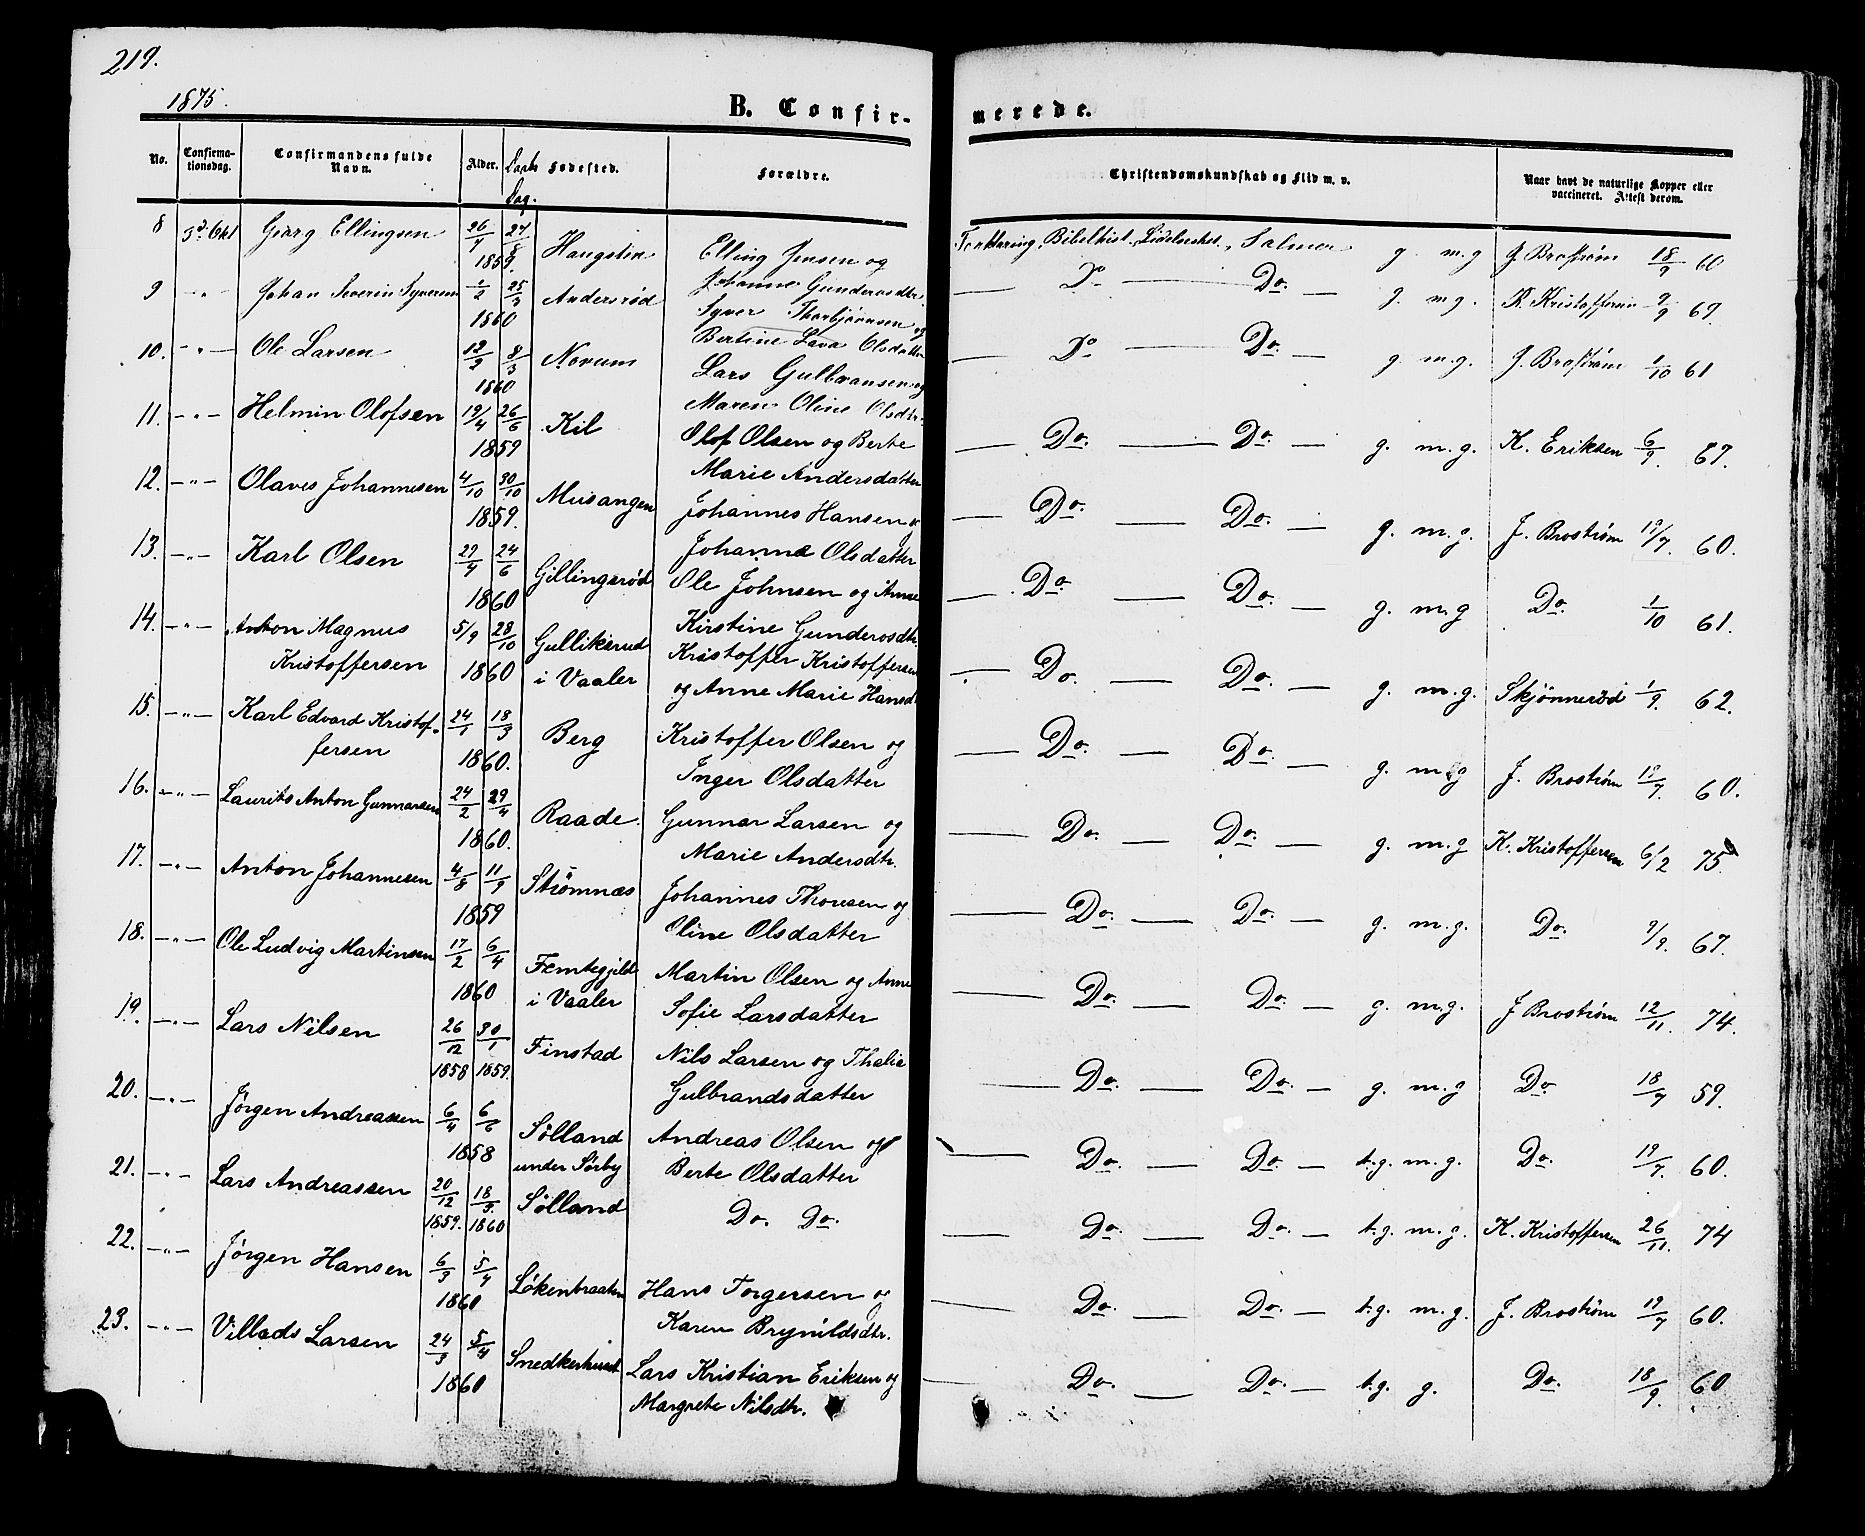 219.
1875.
B. Confir-
merede.
No.
Confirma-
tionsdag.
Confirmandens fulde
Navn.
Alder.
Daabs
Dag.
Fødested.
Forældre.
Christendomskundskab og Flid m. v.
Naar havt de naturlige Kopper eller
vaccineret. Attest derom.
8 3d Okt Georg Ellingsen 1859. Elling Jensen og
Johanne Gunderosdtr.
Forklaring, Bibelhist., Salmer g. m.g J. Brostrøm 18/9 60
9 — " — Johan Severin Syversen 1/2 25/3 1860 Andersrød Syver Thorbjørnsen og
Bertine Lava Olsdatter
— Do — Do. — g. m.g. K. Kristoffersen 9/9 69.
10. — " — Ole Larsen 12/2 8/3 1860 Norum Lars Gulbransen og
Maren Oline Olsdtr.
— Do — Do. — g. m.g. J. Brostrøm 1/10 61
11. — " — Helmin Olofsen 19/4 26/6 1859 Kil Olof Olsen og Berte
Marie Andersdatter
— Do. — Do. — g. m.g. K. Eriksen 6/9. 67.
12. — " — Olaves Johannesen 4/10 30/10 1859. Musangen Johannes Hansen og
Johanne Olsdatter
— Do. — Do. — g. m.g. J. Brostrøm 19/7. 60.
13. — " — Karl Olsen 24/6 1860 Gillingsrød Ole Johnsen og Anne
Kirstine Gunderosdtr.
— Do. — Do. — g. m.g Do. 1/10 61.
14. — " — Anton Magnus
Kristoffersen 5/9 28/10 1860 Gulliksrud
i Vaaler Kristoffer Kristoffersen
og Anne Marie Hansd
— Do. — Do. — g. m.g. Skjønnerød 1/9. 62.
15. — " — Karl Edvard Kristof-
fersen 24/1 18/3 1860. Berg Kristoffer Olsen og
Inger Olsdatter
— Do. — Do. — g. m.g J. Brostrøm 19/7. 60.
16. — " — Laurits Anton Gunnarsen 24/2 29/4 1860. Raade. Gunnar Larsen og
Marie Andersdtr.
— Do. — Do. — g. m.g K. Kristoffersen 6/2 75
17. — " — Anton Johannesen 4/8 11/9 1859 Strømnæs Johannes Thoresen og
Oline Olsdatter
— Do. — Do. — g. m.g. Do. 9/9. 67.
18. — " — Ole Ludvig Martinsen 17/2 6/4 1860 Femtegjeld
i Vaaler Martin Olsen og Anne
Sofie Larsdatter
— Do. — Do. — g. m.g. J Brostrøm 12/11. 74.
19. — " — Lars Nilsen 26/12 1858 30/1 1859. Finstad Nils Larsen og Thalie
Gulbrandsdatter
— Do. — Do. — g. m.g Do. 18/7 59.
20. — " — Jörgen Andreassen 6/4 6/6 1858 Sölland
under Sörby Andreas Olsen og
Berte Olsdatter
— Do. — Do. — t.g. m.g. Do. 19/7. 60.
21. — " — Lars Andreassen 20/12 1859. 18/3. 1860 Sölland Do. Do.
— Do. — Do. — t.g. m.g. K. Kristoffersen 26/11. 74
22. — " — Jörgen Hansen 6/3 5/4 1860 Lökenbraaten Hans Torgersen og
Karen Brynildsdtr.
— Do. — Do. — t.g. m.g. J. Brostrøm 19/7 60.
23. — " — Villads Larsen 24/3 5/4 1860 Snedkerhuset Lars Kristian Eriksen og
Margrete Nilsdtr.
— Do. — Do. — t.g. g. Do. 18/9. 60